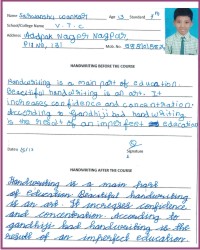 Name :
Age : 13 Standard 7th
School/College Name : V - T - C
Address : Aadpak Nagar Nagpur,
Plt No, 131 Mob. No.
HANDWRITING BEFORE THE COURSE
Handwriting is a main part of education.
Beautiful handwriting is an art. It
increases confidence and concentration.
According to Gandhiji bad handwriting
is the result of an imperfect education
Date :
Signature
HANDWRITING AFTER THE COURSE
Handwriting is a main part
of education. Beautiful handwriting
is an art. It increases confidence
and concentration. According to
gandhiji bad handwriting is the
result of an imperfect education.